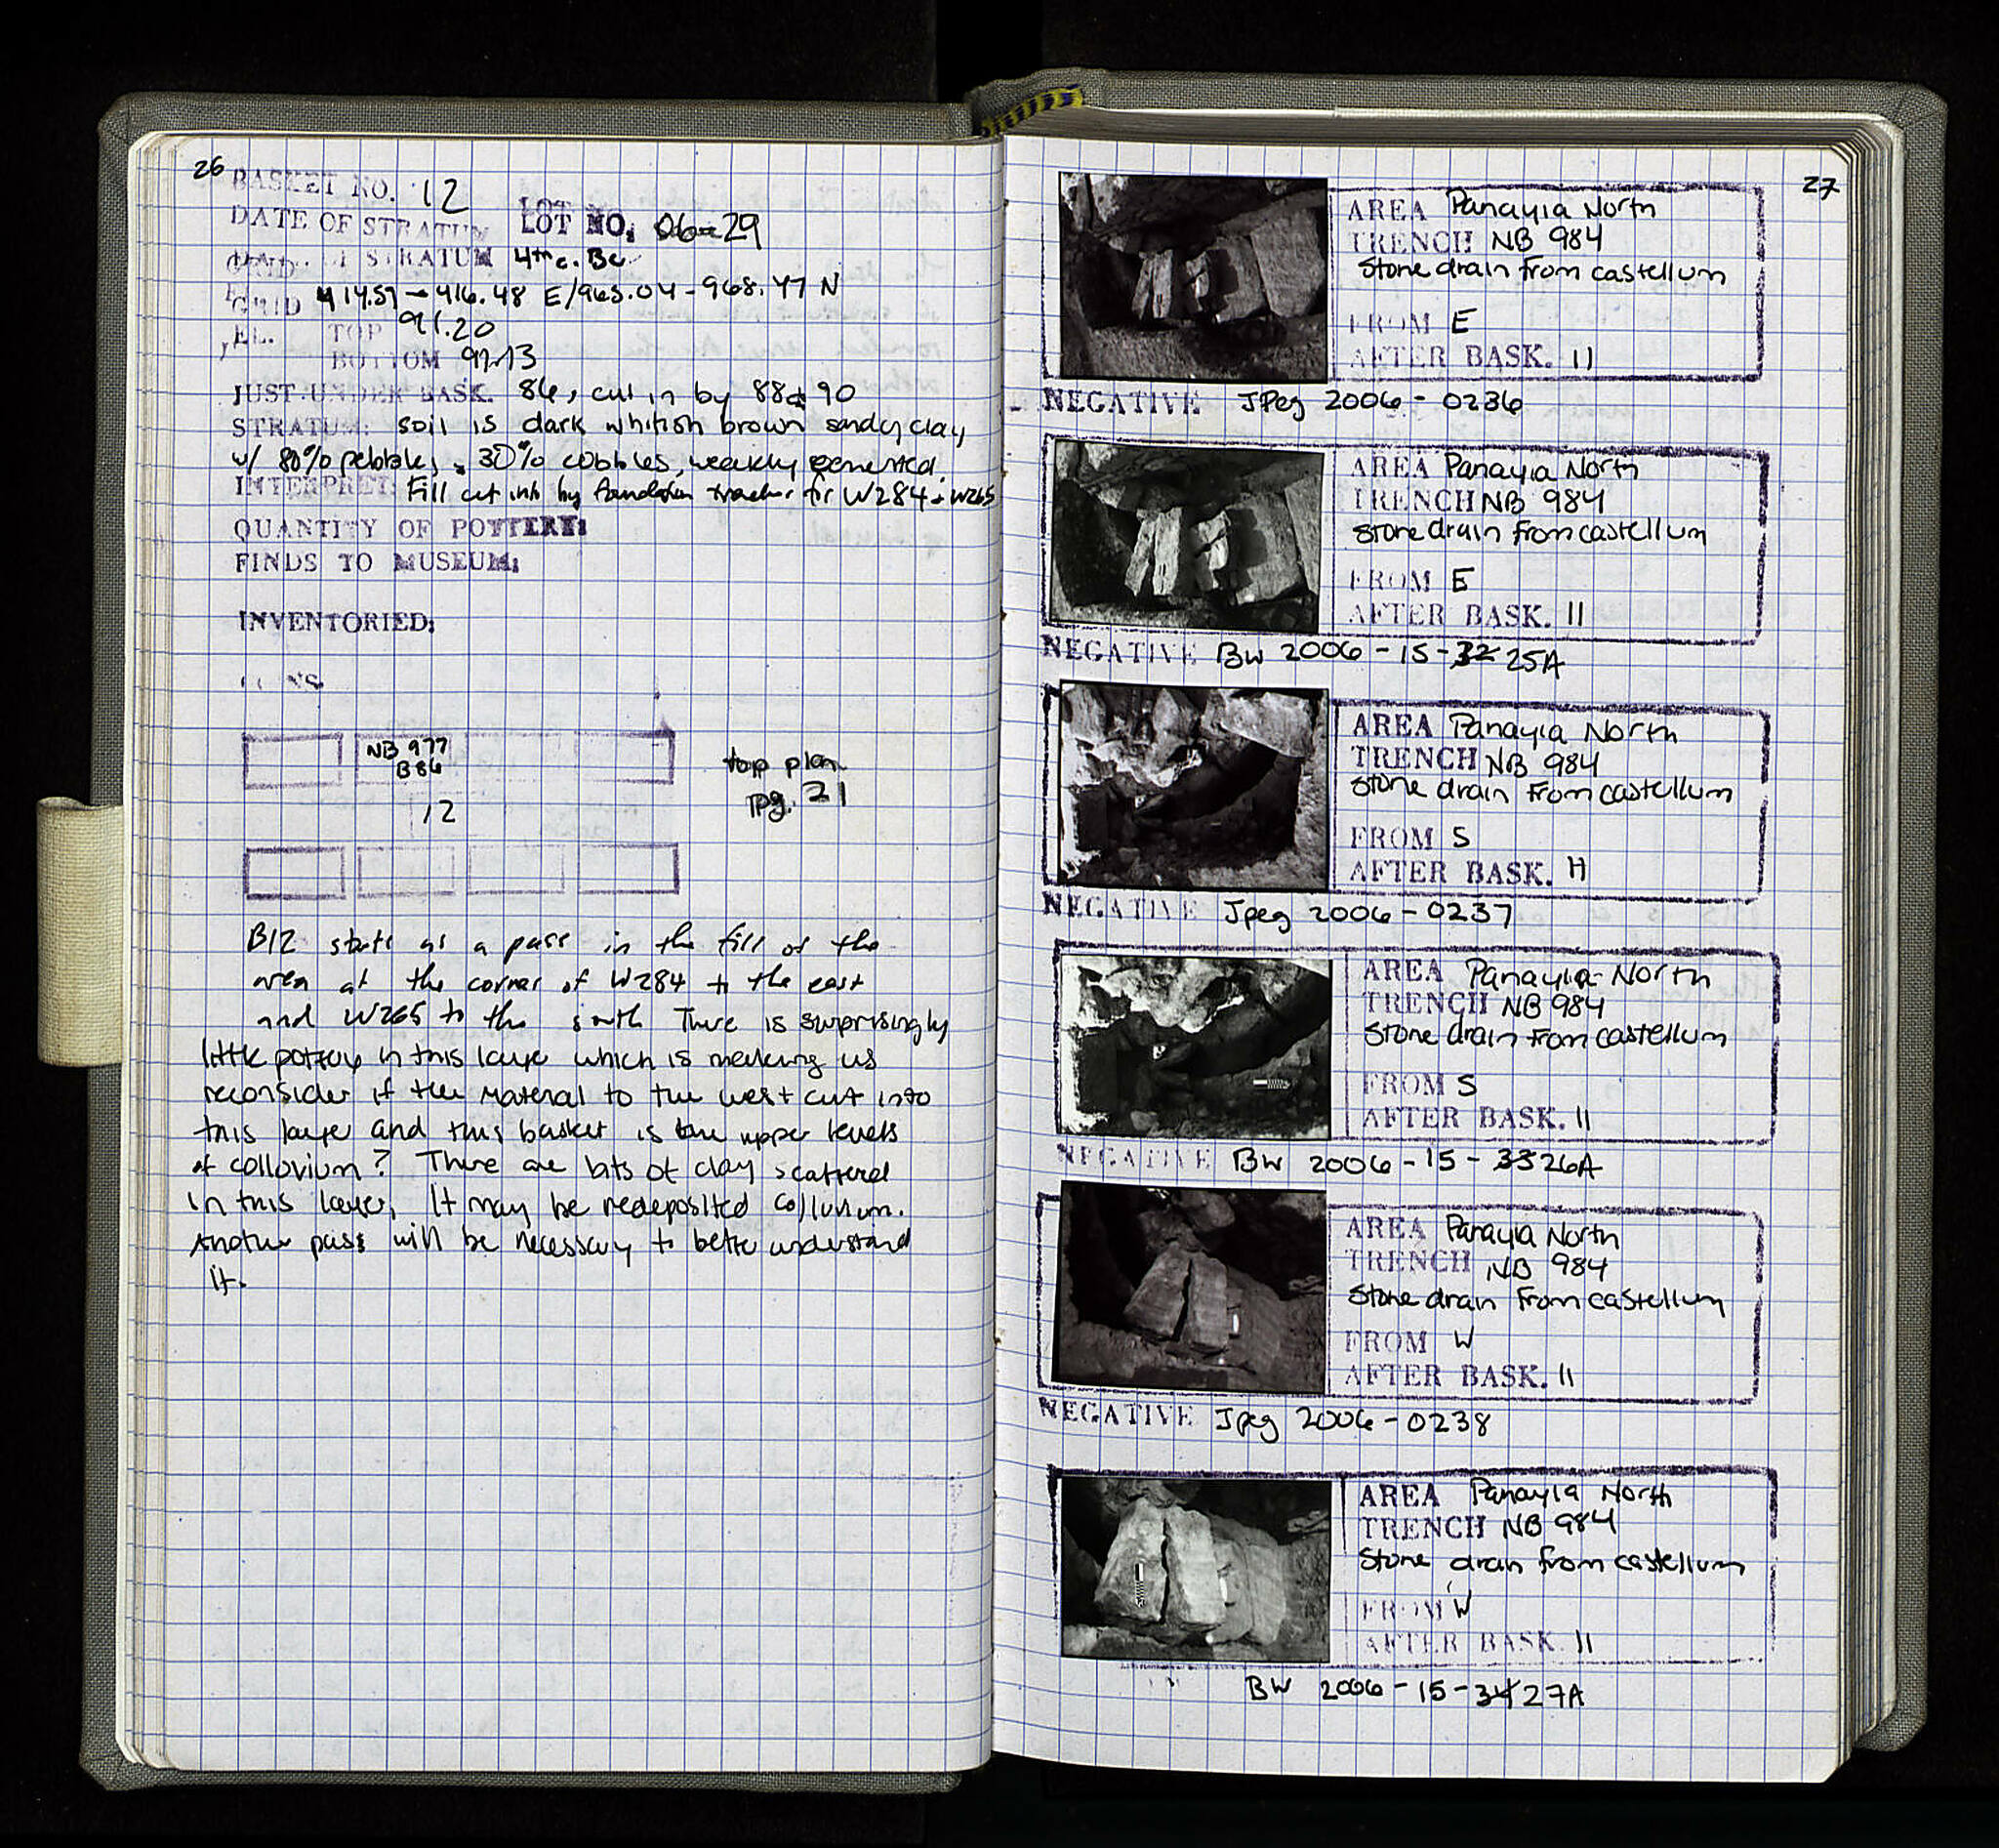 26
BASKET NO. 12
DATE OF STRATUM LOT NO. 06-29
STRATUM 4th c. BC
GRID 414.59 - 416.48 E/965.04 - 968.47 N
EL. TOP 91.20
BOTTOM 91.13
JUST UNDER BASK. 86, cut in by 88 & 90
STRATUM: soil is dark whitish brown sandy clay
w/ 80% pebbles, 30% cobbles, weakly cemented.
INTERPRET: Fill cut into by foundation trenches for W284 + W265
QUANTITY OF POTTERY:
FINDS TO MUSEUM:
INVENTORIED:
NB 977
B86
12
top plan
pg. 21
B12 starts as a pass in the fill of the
area at the corner of W284 to the east
and W265 to the south There is surprisingly
little pottery in this layer which is making us
reconsider if the material to the west cut into
this layer and this basket is the upper levels
of colluvium? There are bits of clay scattered
in this layer, It may be redeposited colluvium.
Another pass will be necessary to better understand
it.
27
AREA Panayia North
TRENCH NB 984
Stone drain from castellum
FROM E
AFTER BASK. 11
NEGATIVE JPeg 2006 - 0236
AREA Panayia North
TRENCH NB 984
Stone drain from castellum
FROM E
AFTER BASK. 11
NEGATIVE BW 2006 - 15 - 32 25A
AREA Panayia North
TRENCH NB 984
Stone drain from castellum
FROM S
AFTER BASK. 11
NEGATIVE Jpeg 2006 - 0237
AREA Panayia North
TRENCH NB 984
Stone drain from castellum
FROM S
AFTER BASK. 11
NEGATIVE BW 2006 - 15 - 33 26A
AREA Panayia North
TRENCH NB 984
Stone drain from castellum
FROM W
AFTER BASK. 11
NEGATIVE Jpeg 2006 - 0238
AREA Panayia North
TRENCH NB 984
Stone drain from castellum
FROM W
AFTER BASK. 11
BW 2006 - 15 - 34 27A